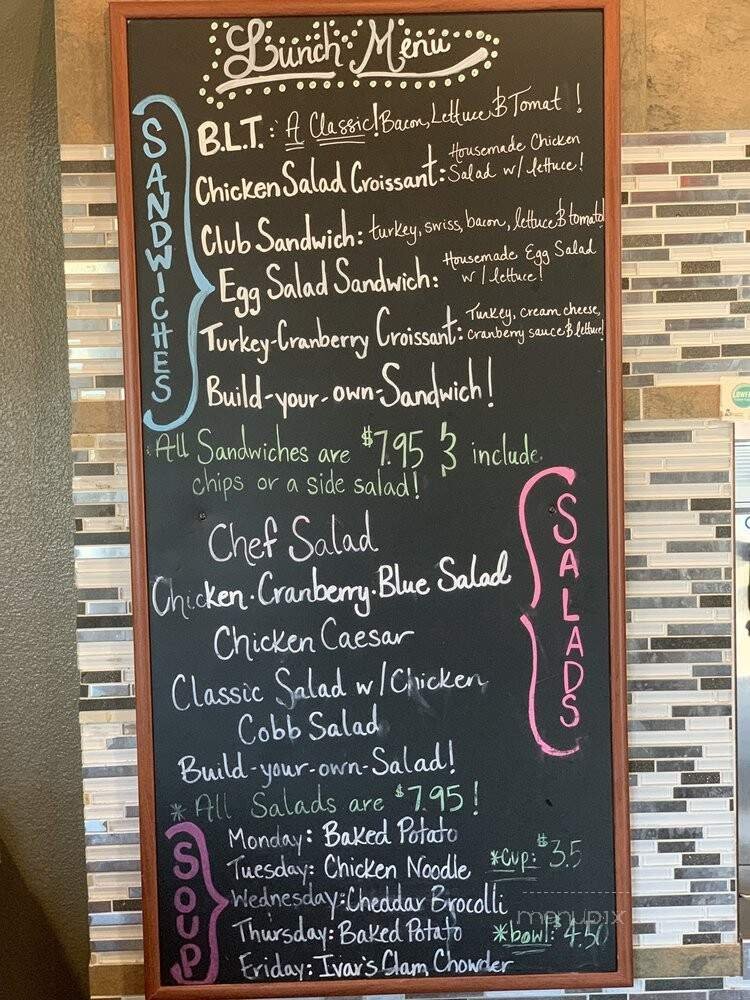 Lunch Menu
SANDWICHES
B.L.T.: A Classic! Bacon, Lettuce & Tomat !
Chicken Salad Croissant: Housemade Chicken
Salad w/ lettuce!
Club Sandwich: turkey, swiss, bacon, lettuce & tomato!
Egg Salad Sandwich: Housemade Egg Salad
w/ lettuce!
Turkey-Cranberry Croissant: Turkey, cream cheese,
cranberry sauce & lettuce!
Build-your-own-Sandwich!
All Sandwiches are $7.95 & include
chips or a side salad!
SALADS
Chef Salad
Chicken.Cranberry.Blue Salad
Chicken Caesar
Classic Salad w/Chicken
Cobb Salad
Build-your-own-Salad!
*All Salads are $7.95!
SOUP
Monday: Baked Potato
Tuesday: Chicken Noodle *cup: $3.5
Wednesday: Cheddar Brocolli
Thursday: Baked Potato *bowl: $4.50
Friday: Ivar's Clam Chowder
menupix